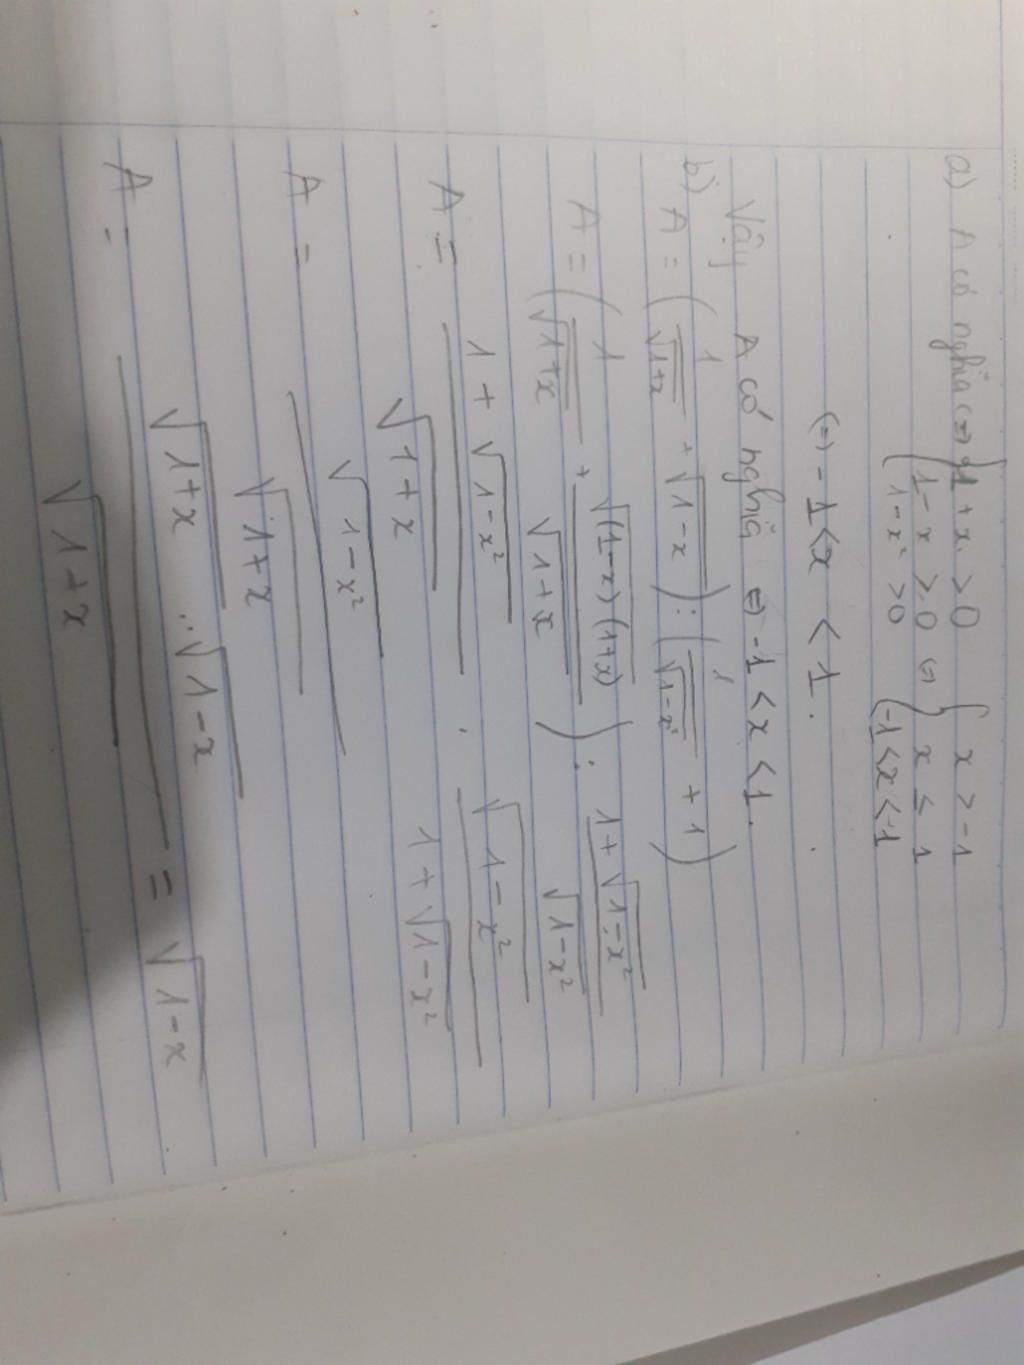 a) A có nghĩa (=) { 1+x > 0 { x > -1
1-x ≥ 0 (=) x ≤ 1
1-x² > 0 -1 < x < 1
(=) -1 < x < 1.
Vậy A có nghĩa (=) -1 < x < 1.
b) A = (1/√(1+x) + √(1-x)) : (1/√(1-x²) + 1)
A = (1/√(1+x) + √((1-x)(1+x))/√(1+x)) : (1+√(1-x²))/√(1-x²)
A = (1+√(1-x²))/√(1+x) . √(1-x²)/(1+√(1-x²))
A = √(1-x²)/√(1+x)
A = (√(1+x) . √(1-x))/√(1+x) = √(1-x)